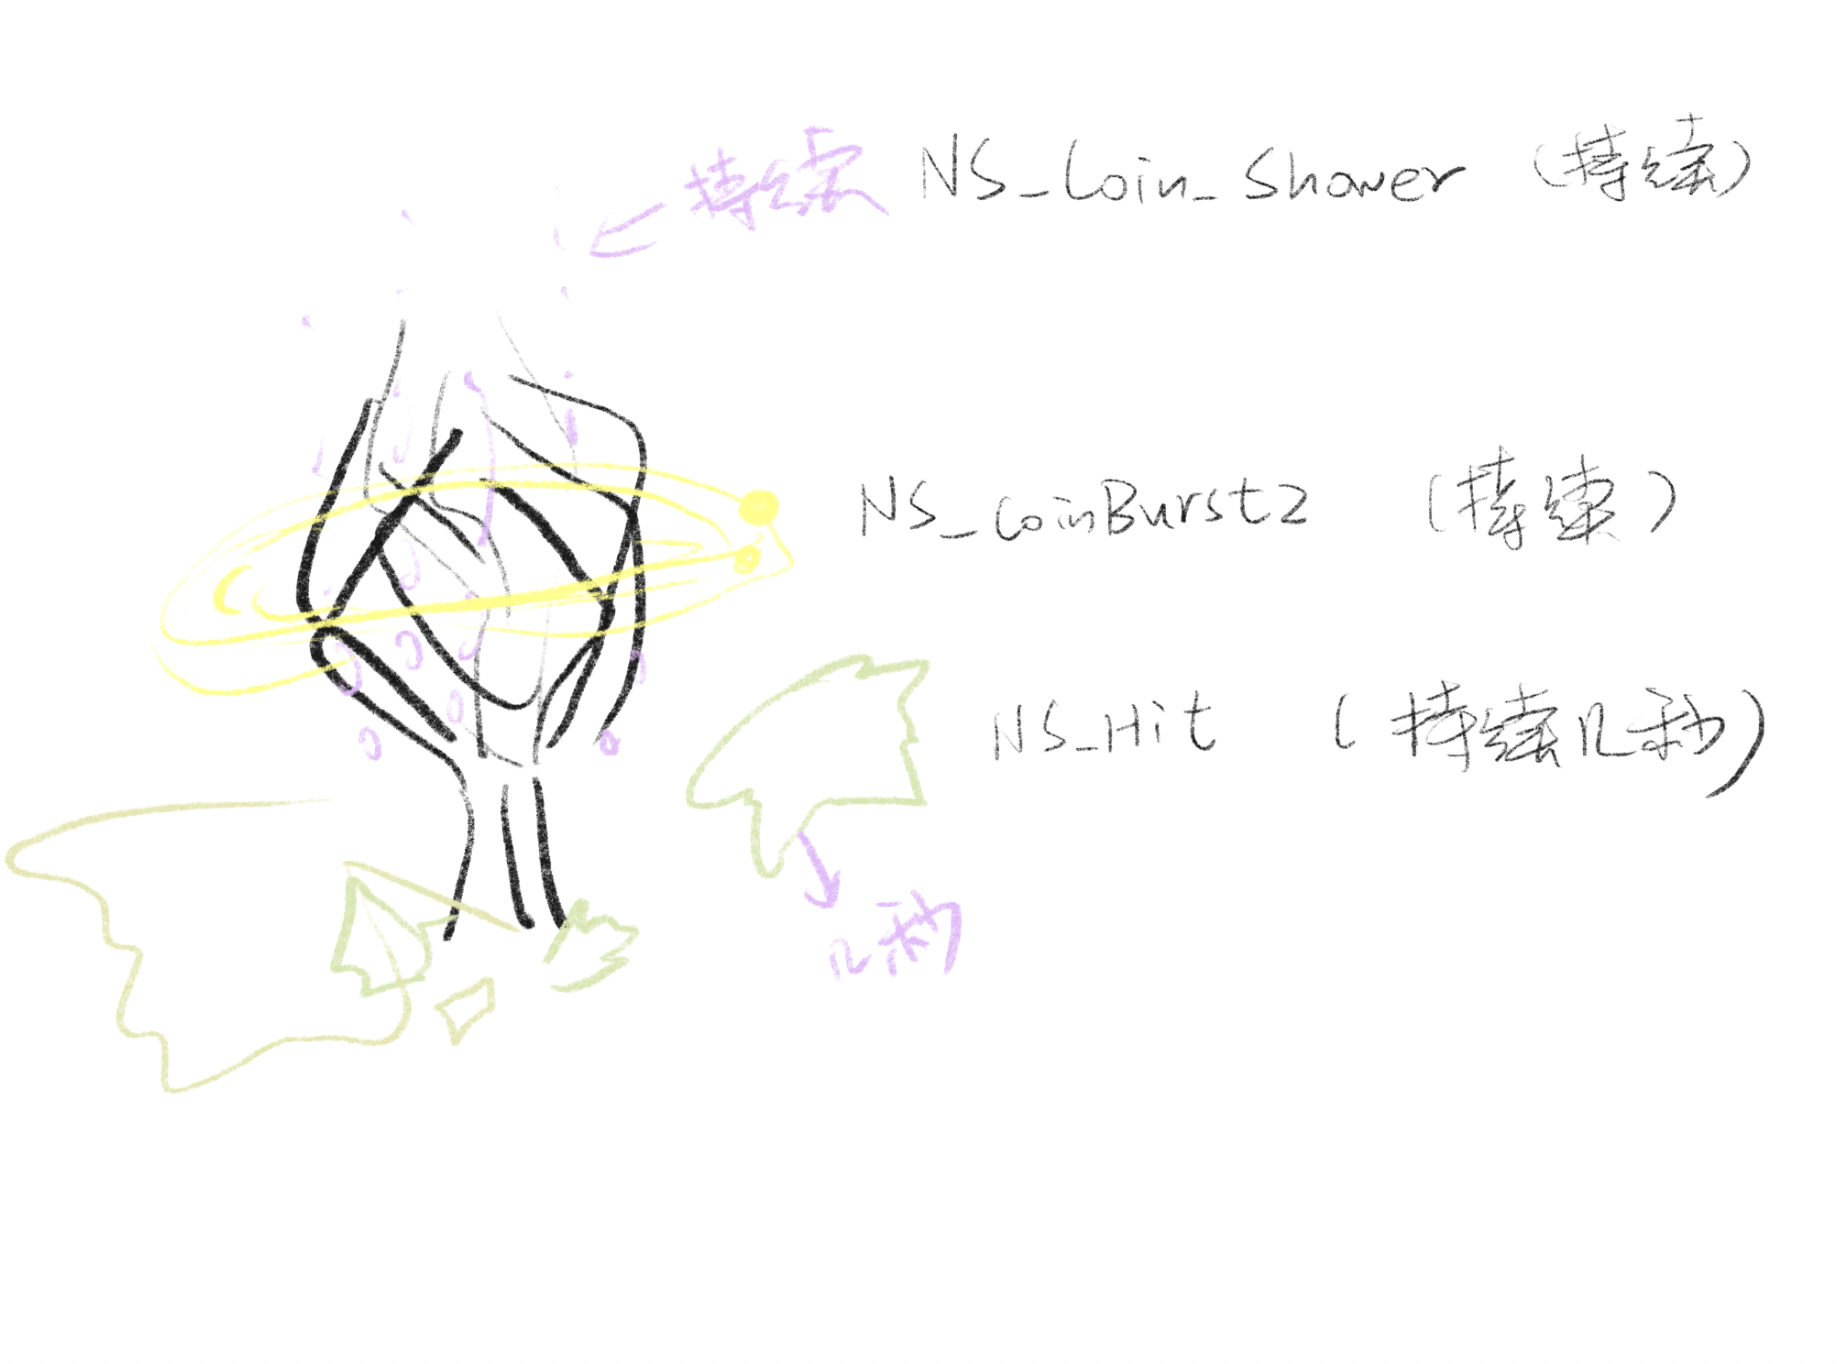 持续 NS_Coin_Shower (持续)
NS_CoinBurst2 (持续)
NS_Hit (持续几秒)
几秒